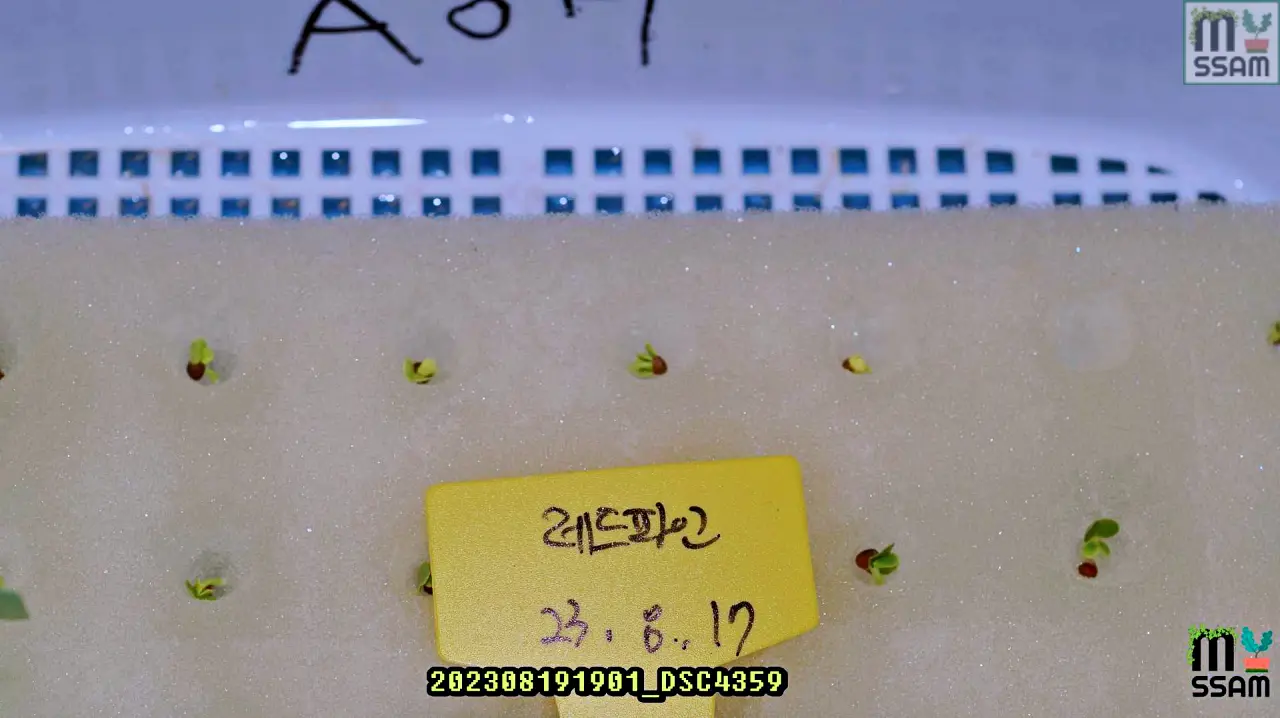 m
SSAM
레드파인
23. 8. 17
202308191901_DSC4359
m
SSAM